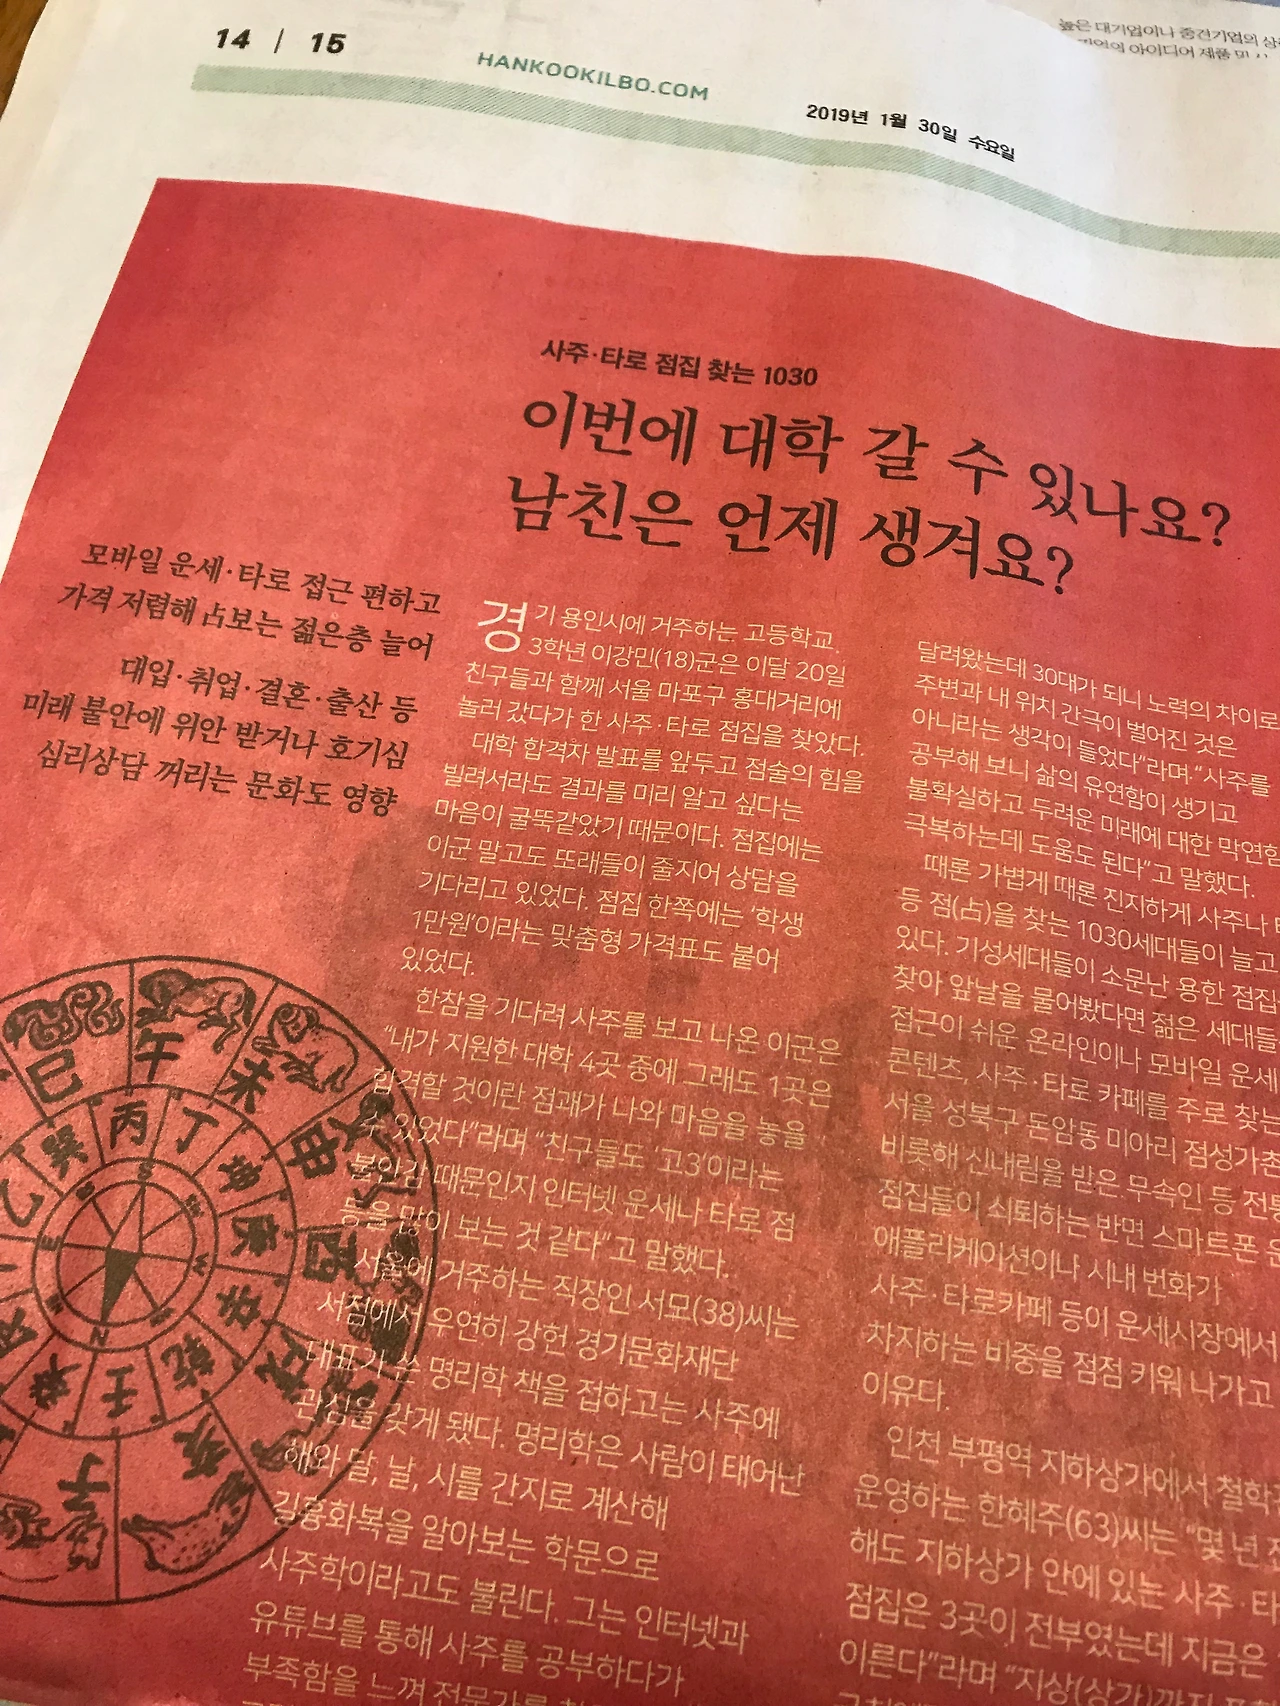 높은 대기업이나 중견기업의
아이디어 제품 및
14 | 15
HANKOOKILBO.COM
2019년 1월 30일 수요일
사주·타로 점집 찾는 1030
이번에 대학 갈 수 있나요?
남친은 언제 생겨요?
모바일 운세·타로 접근 편하고
가격 저렴해 占보는 젊은층 늘어
대입·취업·결혼·출산 등
미래 불안에 위안 받거나 호기심
심리상담 꺼리는 문화도 영향
경기 용인시에 거주하는 고등학교
3학년 이강민(18)군은 이달 20일
친구들과 함께 서울 마포구 홍대거리에
놀러 갔다가 한 사주·타로 점집을 찾았다.
대학 합격자 발표를 앞두고 점술의 힘을
빌려서라도 결과를 미리 알고 싶다는
마음이 굴뚝같았기 때문이다. 점집에는
이군 말고도 또래들이 줄지어 상담을
기다리고 있었다. 점집 한쪽에는 ‘학생
1만원’이라는 맞춤형 가격표도 붙어
있었다.
한참을 기다려 사주를 보고 나온 이군은
“내가 지원한 대학 4곳 중에 그래도 1곳은
합격할 것이란 점괘가 나와 마음을 놓을
수 있었다”라며 “친구들도 ‘고3’이라는
불안감 때문인지 인터넷 운세나 타로 점
등을 많이 보는 것 같다”고 말했다.
서울에 거주하는 직장인 서모(38)씨는
서점에서 우연히 강헌 경기문화재단
대표가 쓴 명리학 책을 접하고는 사주에
관심을 갖게 됐다. 명리학은 사람이 태어난
해와 달, 날, 시를 간지로 계산해
길흉화복을 알아보는 학문으로
사주학이라고도 불린다. 그는 인터넷과
유튜브를 통해 사주를 공부하다가
부족함을 느껴 전문가를
달려왔는데 30대가 되니 노력의 차이로
주변과 내 위치 간극이 벌어진 것은
아니라는 생각이 들었다”라며 “사주를
공부해 보니 삶의 유연함이 생기고
불확실하고 두려운 미래에 대한 막연함
극복하는데 도움도 된다”고 말했다.
때론 가볍게 때론 진지하게 사주나
등 점(占)을 찾는 1030세대들이 늘고
있다. 기성세대들이 소문난 용한 점집
찾아 앞날을 물어봤다면 젊은 세대들
접근이 쉬운 온라인이나 모바일 운세
콘텐츠, 사주·타로 카페를 주로 찾는
서울 성북구 돈암동 미아리 점성가촌
비롯해 신내림을 받은 무속인 등 전통
점집들이 쇠퇴하는 반면 스마트폰 운
애플리케이션이나 시내 번화가
사주·타로카페 등이 운세시장에서
차지하는 비중을 점점 키워 나가고
이유다.
인천 부평역 지하상가에서 철학
운영하는 한혜주(63)씨는 “몇 년 전
해도 지하상가 안에 있는 사주·타
점집은 3곳이 전부였는데 지금은
이른다”라며 “지상(상가)까지
巳 午 未 申 酉 戌 亥 子
巽 丙 丁 坤 庚 辛 乾 壬 癸 乙
S W N E